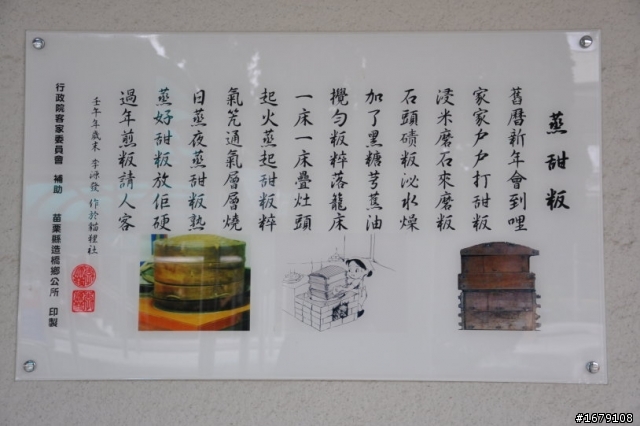 蒸甜粄
舊曆新年會到哩
家家戶戶打甜粄
浸米磨石來磨粄
石頭磧粄泌水燥
加了黑糖芎蕉油
攪勻粄粹落籠床
一床一床疊灶頭
起火蒸起甜粄粹
氣笐通氣層層燒
日蒸夜蒸甜粄熟
蒸好甜粄放佢硬
過年煎粄請人客
壬午年歲末 李源發 作於貓裡社
行政院客家委員會 補助 苗栗縣造橋鄉公所 印製
#1679108